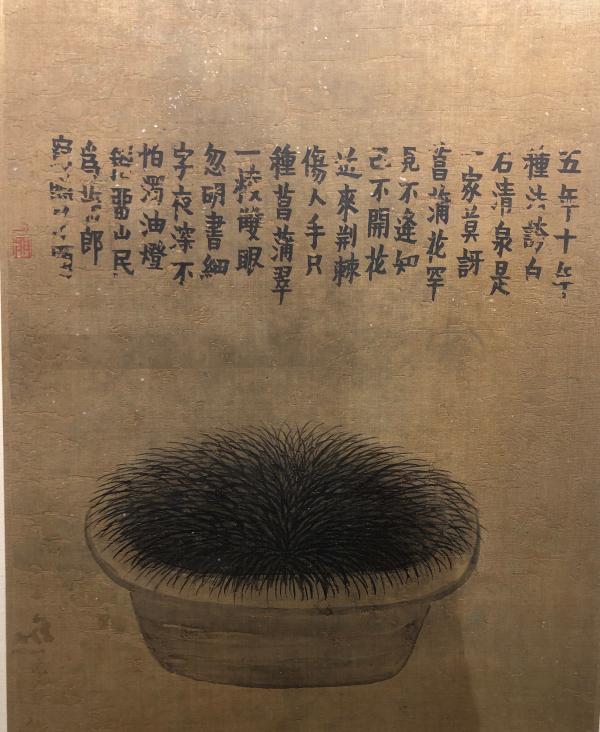 五年十年
種法誇白
石清泉是
一家莫訝
菖蒲花罕
見不逢知
己不開花
近來荆棘
傷人手只
種菖蒲翠
一眼
忽明書細
字夜深不
怕濁油燈
留山民
為郎